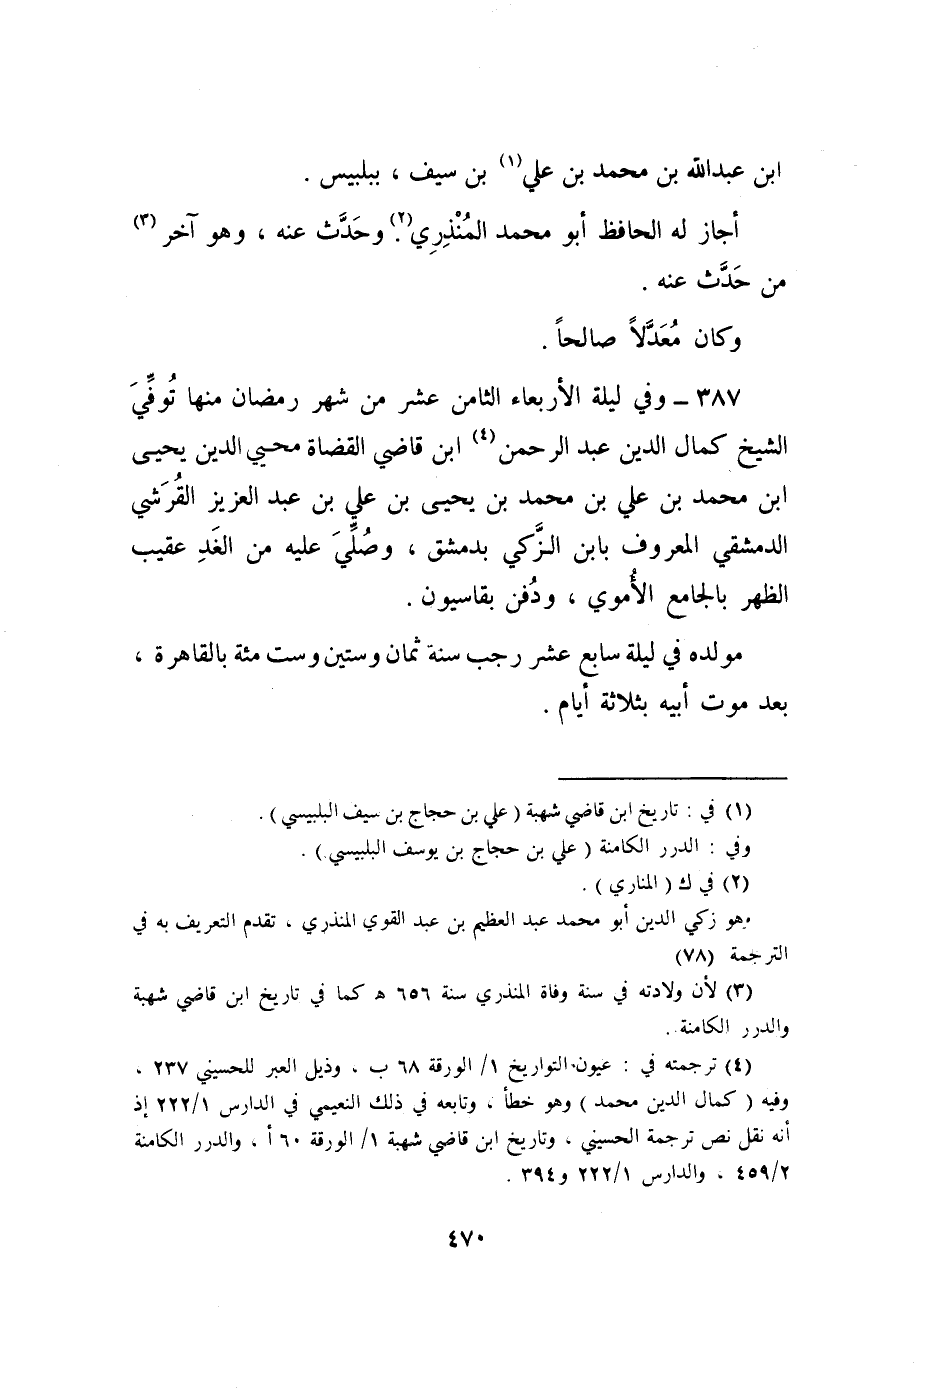 ابن عبدالله بن محمد بن علي(١) بن سيف ، ببلبيس .
أجاز له الحافظ أبو محمد المُنْذِرِي(٢). وحَدَّث عنه ، وهو آخر (٣)
من حَدَّث عنه .
وكان مُعَدَّلاً صالحاً .
٣٨٧ ـ وفي ليلة الأربعاء الثامن عشر من شهر رمضان منها تُوفِّيَ
الشيخ كمال الدين عبد الرحمن(٤) ابن قاضي القضاة محيي الدين يحيى
ابن محمد بن علي بن محمد بن يحيى بن علي بن عبد العزيز القُرَشي
الدمشقي المعروف بابن الزَّكي بدمشق ، وصُلِّيَ عليه من الغَدِ عقيب
الظهر بالجامع الأُموي ، ودُفن بقاسيون .
مولده في ليلة سابع عشر رجب سنة ثمان وستين وست مئة بالقاهرة ،
بعد موت أبيه بثلاثة أيام .
(١) في : تاريخ ابن قاضي شهبة ( علي بن حجاج بن سيف البلبيسي ) .
وفي : الدرر الكامنة ( علي بن حجاج بن يوسف البلبيسي ) .
(٢) في ك ( المناري ) .
وهو زكي الدين أبو محمد عبد العظيم بن عبد القوي المنذري ، تقدم التعريف به في
الترجمة (٧٨)
(٣) لأن ولادته في سنة وفاة المنذري سنة ٦٥٦ هـ كما في تاريخ ابن قاضي شهبة
والدرر الكامنة .
(٤) ترجمته في : عيون التواريخ ١/ الورقة ٦٨ ب ، وذيل العبر للحسيني ٢٣٧ ،
وفيه ( كمال الدين محمد ) وهو خطأ ، وتابعه في ذلك النعيمي في الدارس ٢٢٢/١ إذ
أنه نقل نص ترجمة الحسيني ، وتاريخ ابن قاضي شهبة ١/ الورقة ٦٠ أ ، والدرر الكامنة
٤٥٩/٢ ، والدارس ٢٢٢/١ و٣٩٤ .
٤٧٠